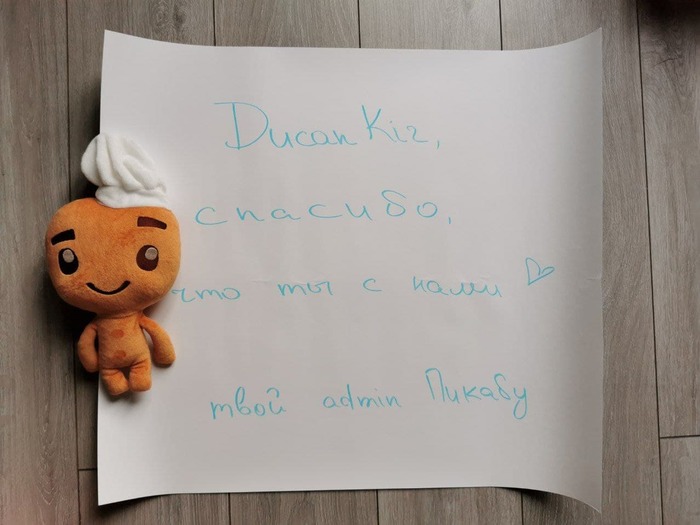 DucanKir,
спасибо,
что ты с нами ♡
твой admin Пикабу